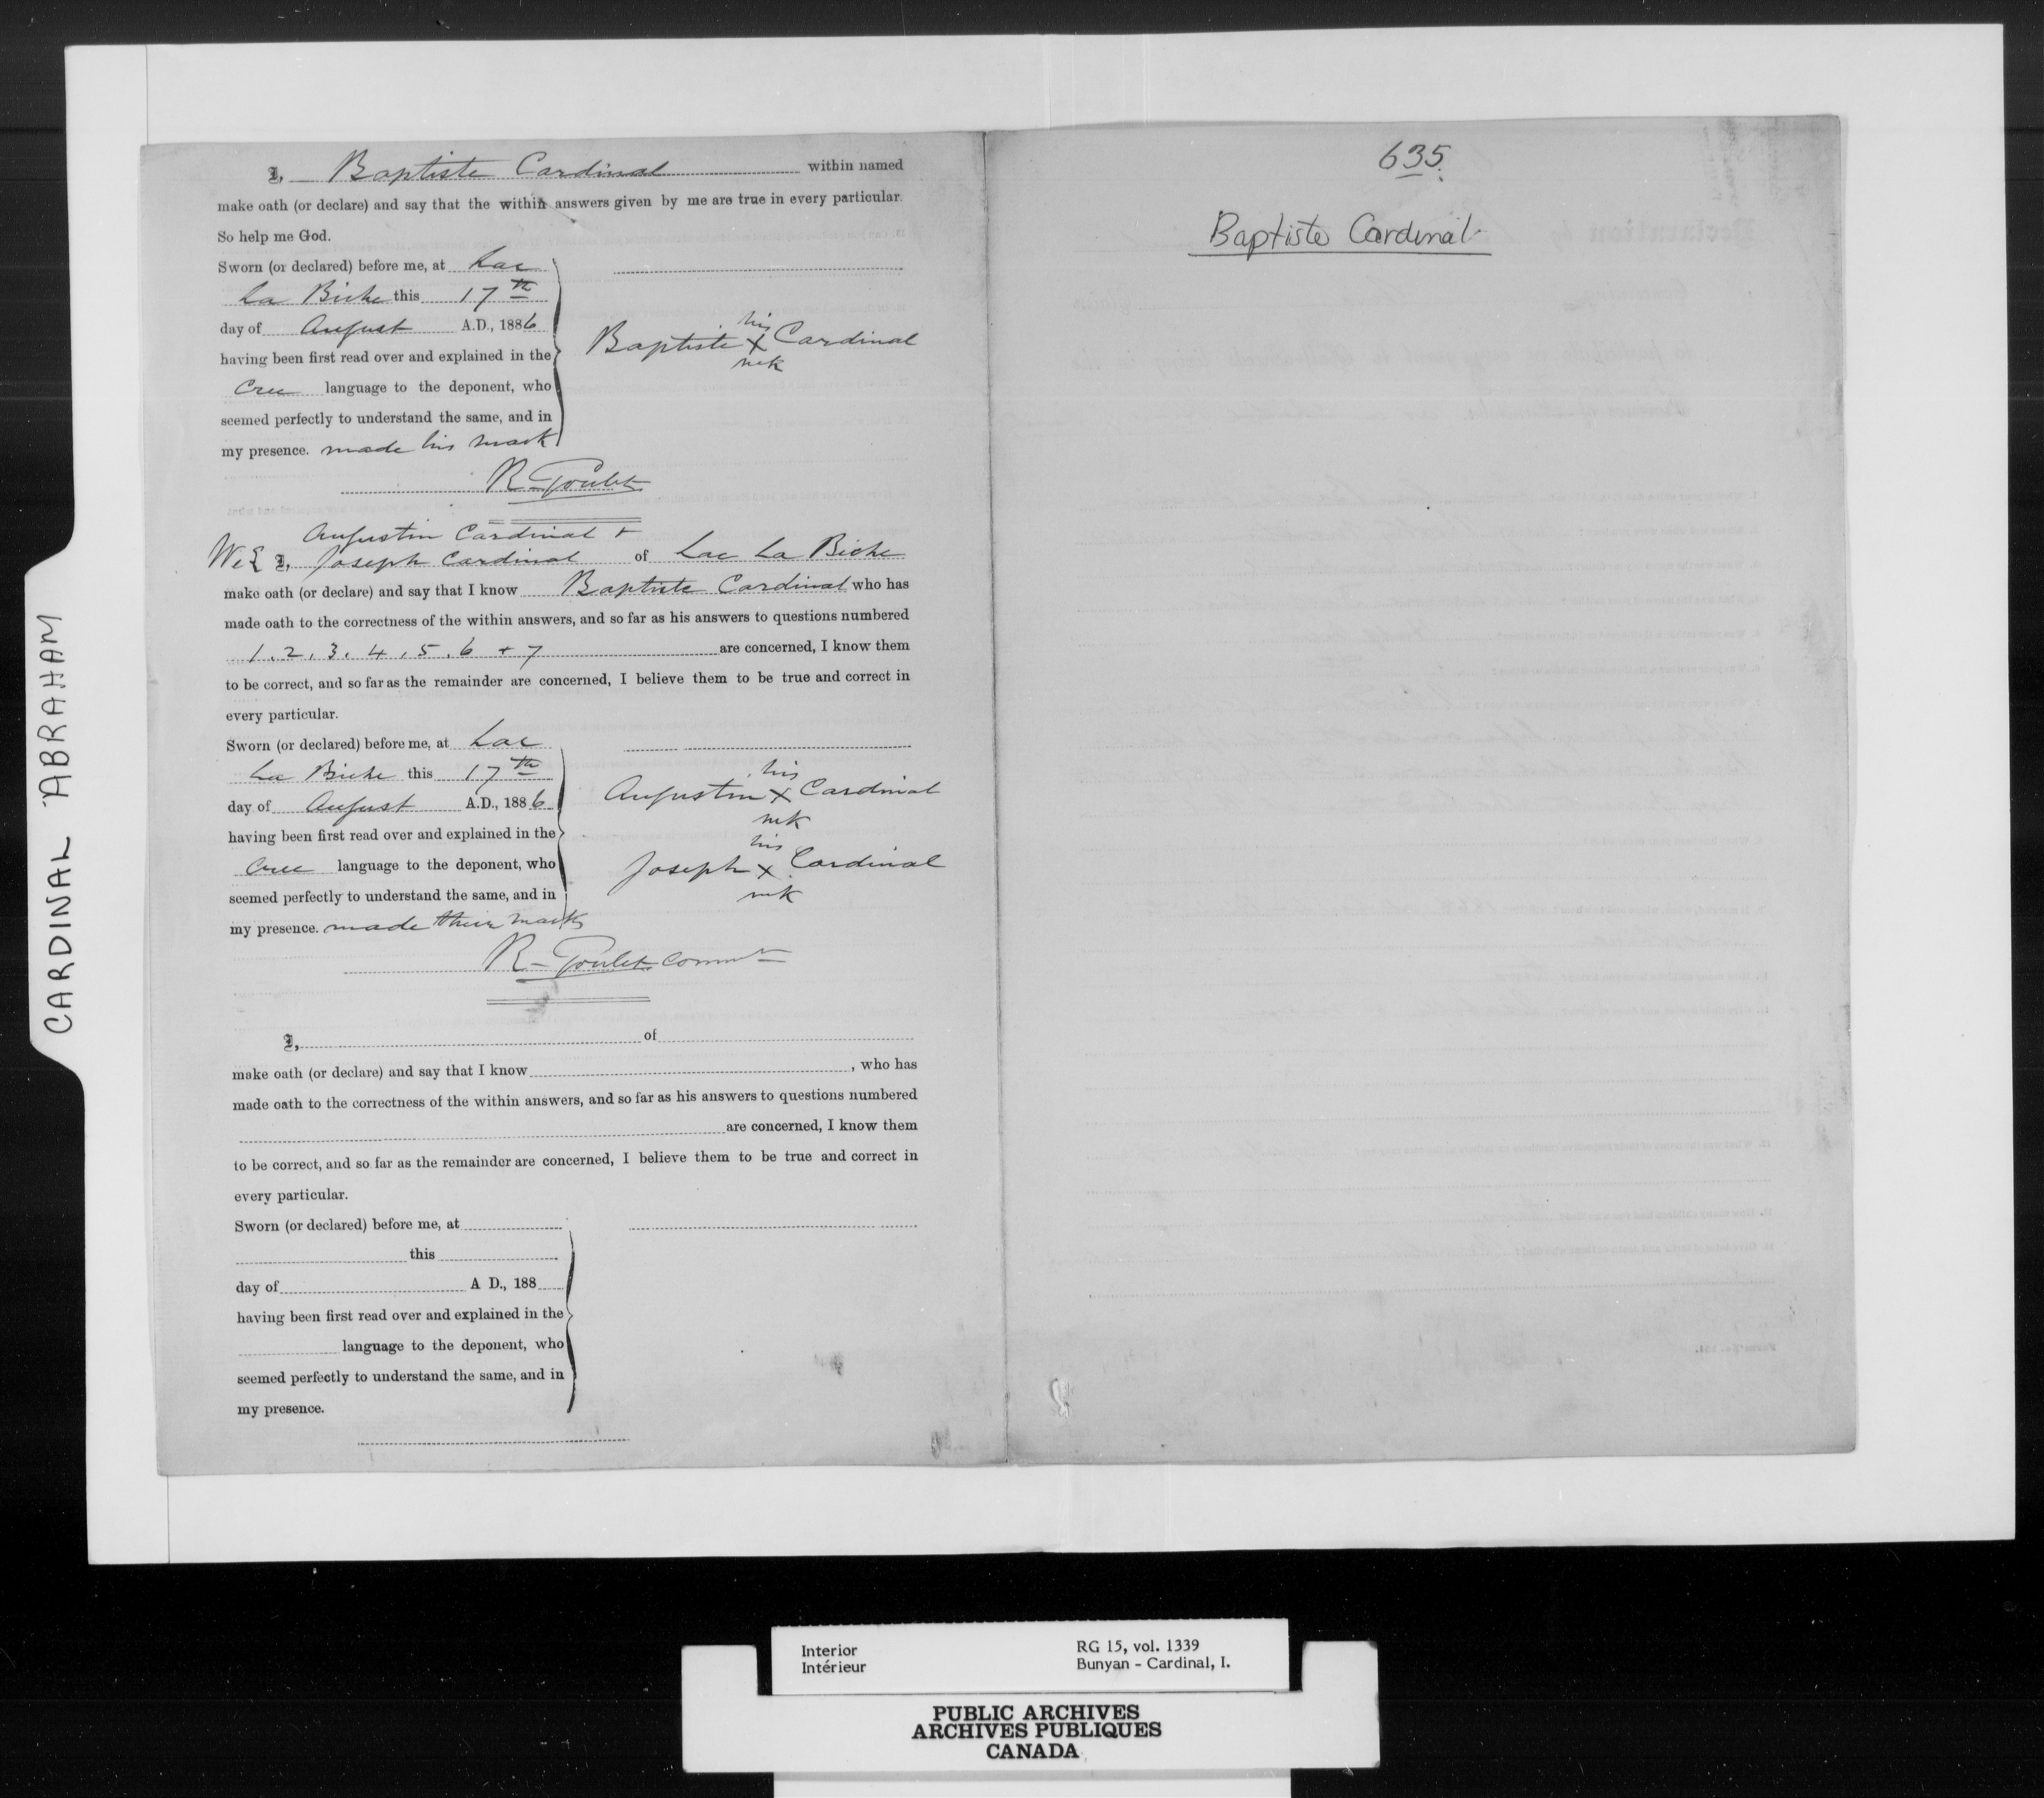 CARDINAL ABRAHAM
I, Baptiste Cardinal within named
make oath (or declare) and say that the within answers given by me are true in every particular.
So help me God.
Sworn (or declared) before me, at Lac
La Biche this 17th
day of August A.D., 1886
having been first read over and explained in the
Cree language to the deponent, who
seemed perfectly to understand the same, and in
my presence. made his mark
his
Baptiste X Cardinal
mk
R Goulet
Augustin Cardinal +
We I, Joseph Cardinal of Lac La Biche
make oath (or declare) and say that I know Baptiste Cardinal who has
made oath to the correctness of the within answers, and so far as his answers to questions numbered
1, 2, 3, 4, 5, 6 + 7 are concerned, I know them
to be correct, and so far as the remainder are concerned, I believe them to be true and correct in
every particular.
Sworn (or declared) before me, at Lac
La Biche this 17th
day of August A.D., 1886
having been first read over and explained in the
Cree language to the deponent, who
seemed perfectly to understand the same, and in
my presence. made their marks
his
Augustin X Cardinal
mk
his
Joseph X Cardinal
mk
R Goulet Commr
I, of
make oath (or declare) and say that I know , who has
made oath to the correctness of the within answers, and so far as his answers to questions numbered
are concerned, I know them
to be correct, and so far as the remainder are concerned, I believe them to be true and correct in
every particular.
Sworn (or declared) before me, at
this
day of A D., 188
having been first read over and explained in the
language to the deponent, who
seemed perfectly to understand the same, and in
my presence.
635
Baptiste Cardinal
Interior
Intérieur
RG 15, vol. 1339
Bunyan - Cardinal, I.
PUBLIC ARCHIVES
ARCHIVES PUBLIQUES
CANADA